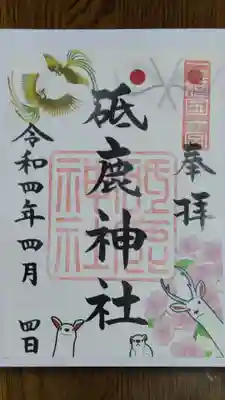 三河國一宮
奉拝
砥鹿神社
砥鹿神社
令和四年四月四日